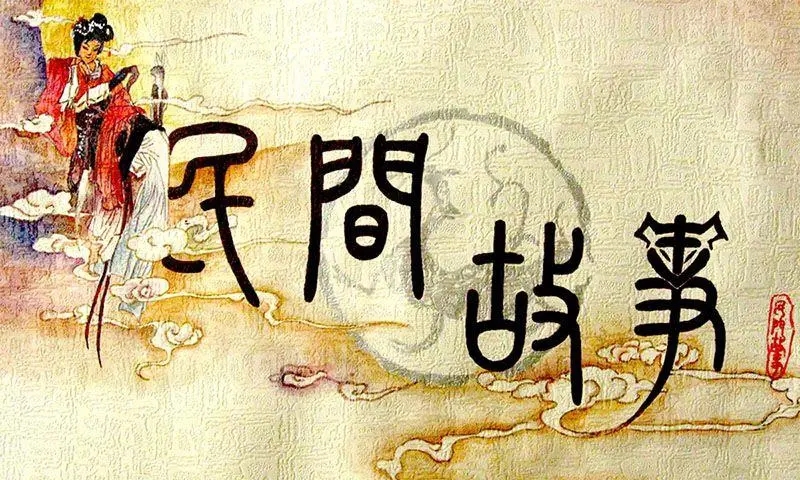 民間故事
民间故事